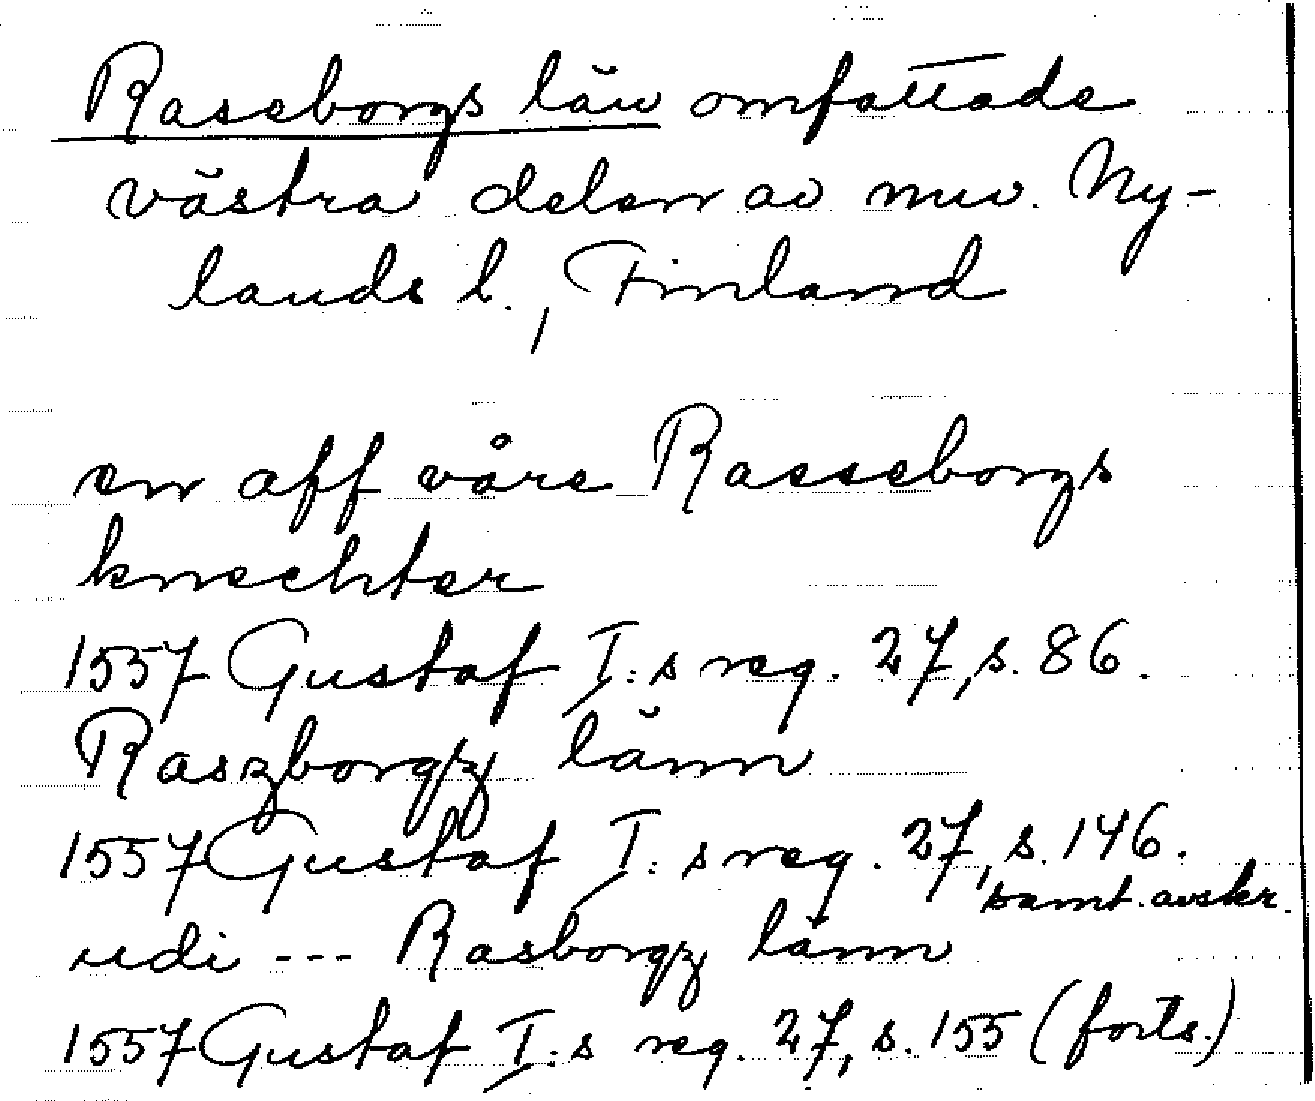 Raseborgs län omfattade
västra delen av nuv. Ny-
lands l., Finland
en aff våre Rasseborgs
knechter
1557 Gustaf I:s reg. 27, s. 86.
Raszborgz länn
1557 Gustaf I:s reg. 27, s. 146.
samt. avskr.
udi --- Rasborgz länn
1557 Gustaf I:s reg. 27, s. 155 (forts.)